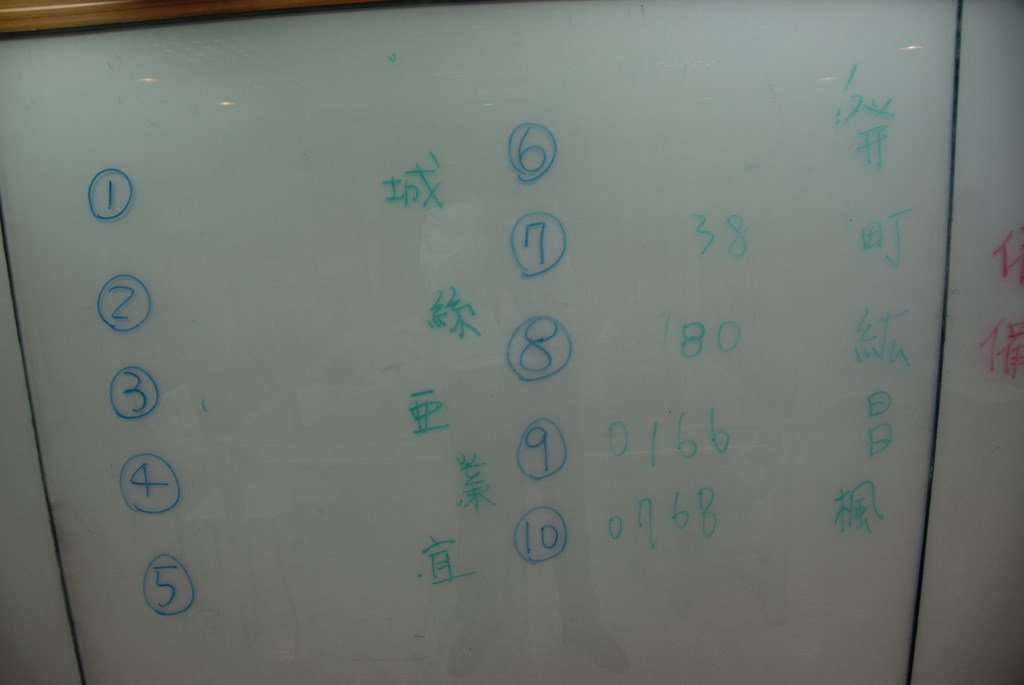 ① 城
② 綵
③ 亜
④ 業
⑤ 宜
⑥
⑦ 38 町
⑧ 180 紘
⑨ 0166 昌
⑩ 0768 楓
備